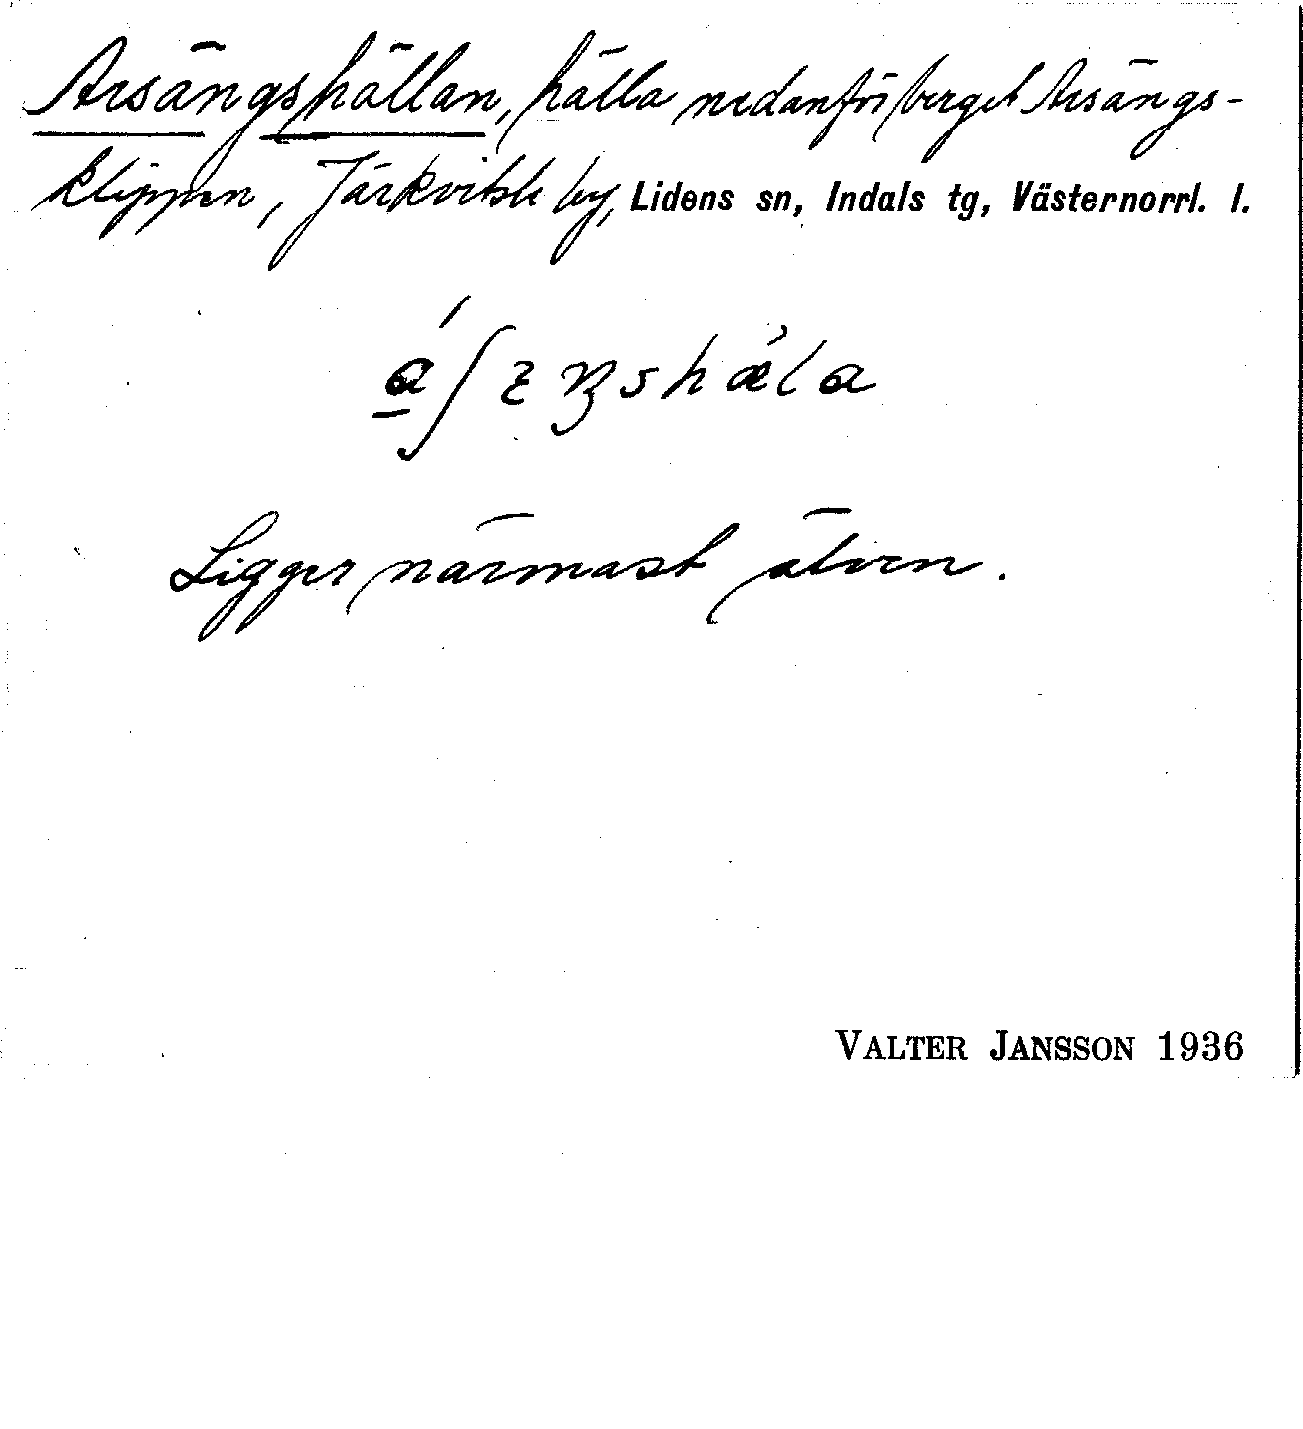 Arsängshällan, hälla nedanför berget Arsängs-
klippen, Järkvitsle by, Lidens sn, Indals tg, Västernorrl. l.
Ligger närmast älven.
VALTER JANSSON 1936